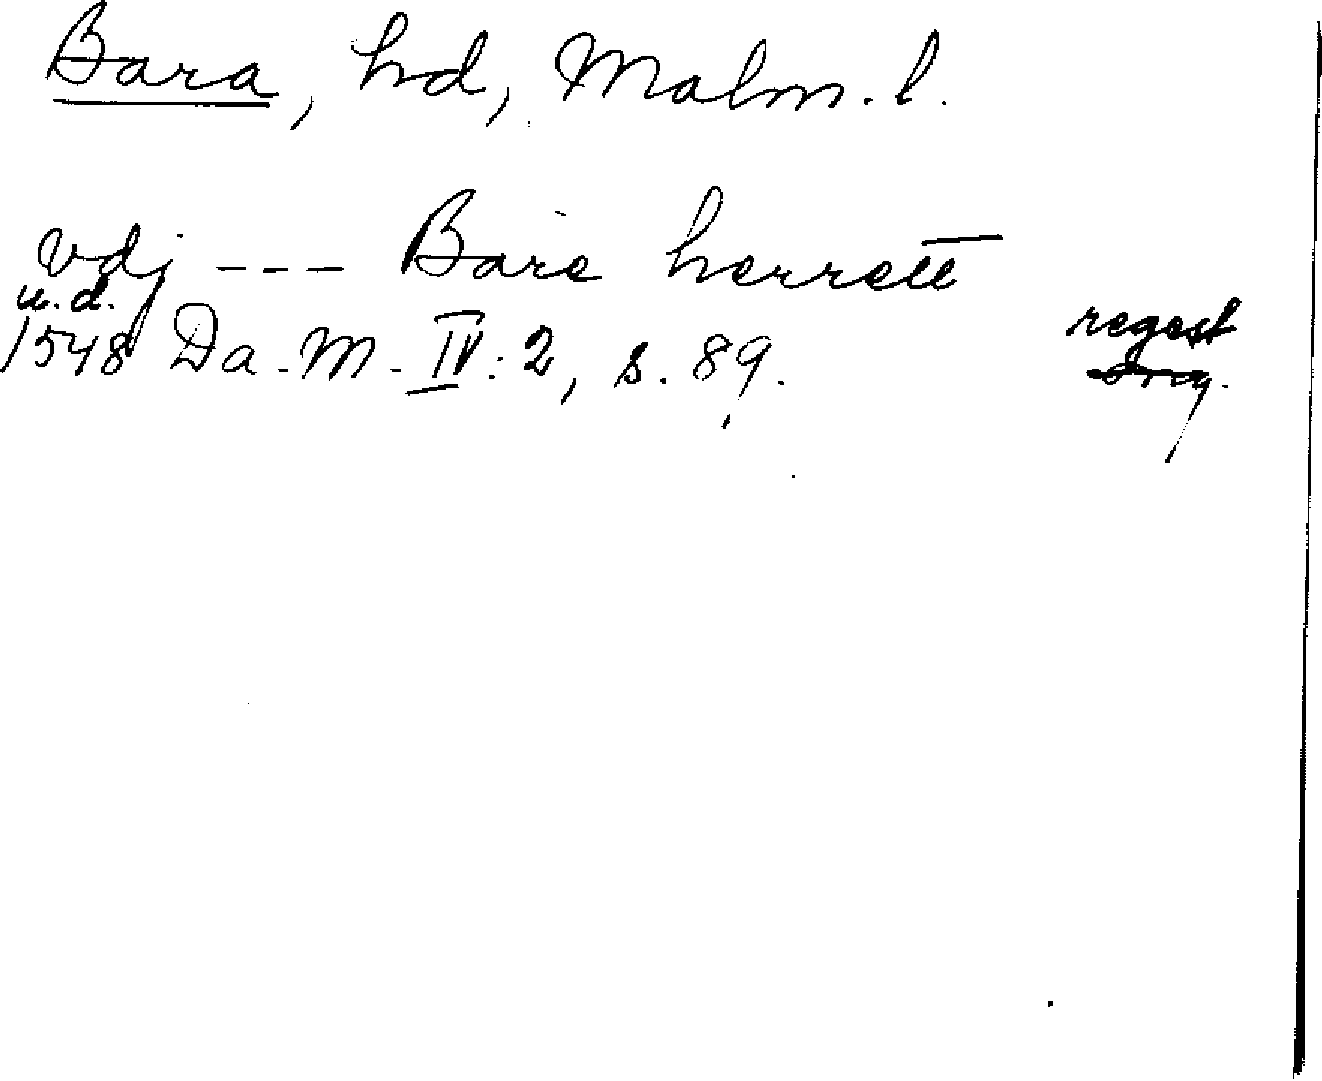 Bara, hd, Malm. l.
vdj --- Bare herrett
u.d.
1548 Da. M. IV: 2, s. 89.
regest
orig.